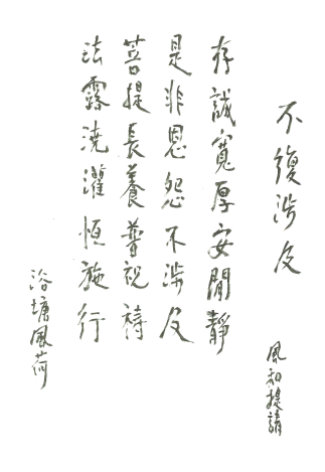 不復涉及
風和提請
存誠寬厚安閒靜
是非恩怨不涉及
菩提長養尊祝禱
法露澆灌恒施行
浴塘風荷